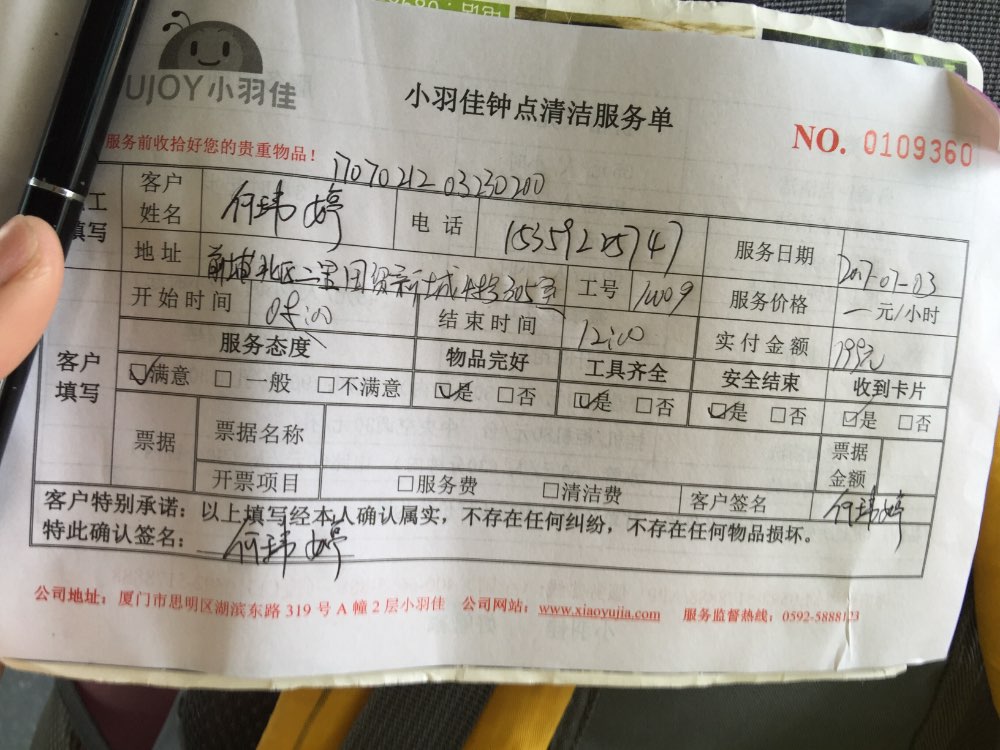 UJOY小羽佳
小羽佳钟点清洁服务单
NO. 0109360
服务前收拾好您的贵重物品！
1707021203230200
工填写
客户姓名 何玮婷 电话 15359225747 服务日期 2017-07-03
地址 前埔北区二里 305室 工号 11009 服务价格 一元/小时
开始时间 结束时间 12:00 实付金额 199元
客户填写
服务态度 物品完好 工具齐全 安全结束 收到卡片
☑满意 □一般 □不满意 ☑是 □否 ☑是 □否 ☑是 □否 ☑是 □否
票据 票据名称 票据金额
开票项目 □服务费 □清洁费 客户签名 何玮婷
客户特别承诺：以上填写经本人确认属实，不存在任何纠纷，不存在任何物品损坏。
特此确认签名： 何玮婷
公司地址：厦门市思明区湖滨东路 319 号 A 幢 2 层小羽佳 公司网站：www.xiaoyujia.com 服务监督热线：0592-5888123